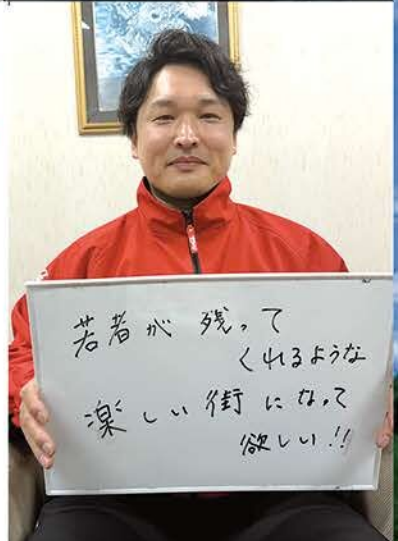 若者が残って
くれるような
楽しい街になって
欲しい!!